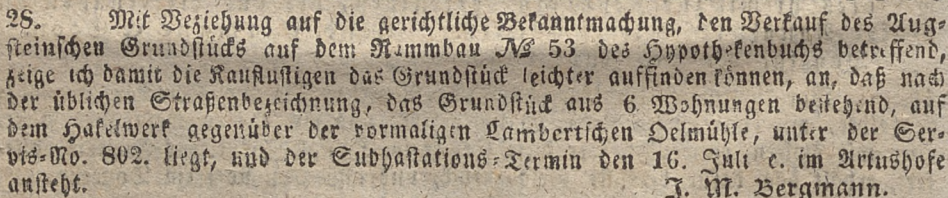 28. Mit Beziehung auf die gerichtliche Bekanntmachung, den Verkauf des Aug-
steinschen Grundstücks auf dem Rammbau № 53 des Hypothekenbuchs betreffend,
zeige ich damit die Kauflustigen das Grundstück leichter auffinden können, an, daß nach
der üblichen Straßenbezeichnung, das Grundstück aus 6 Wohnungen bestehend, auf
dem Hakelwerk gegenüber der vormaligen Lambertschen Oelmühle, unter der Ser-
vis-No. 802. liegt, und der Subhastations-Termin den 16. Juli c. im Artushofe
ansteht. J. M. Bergmann.